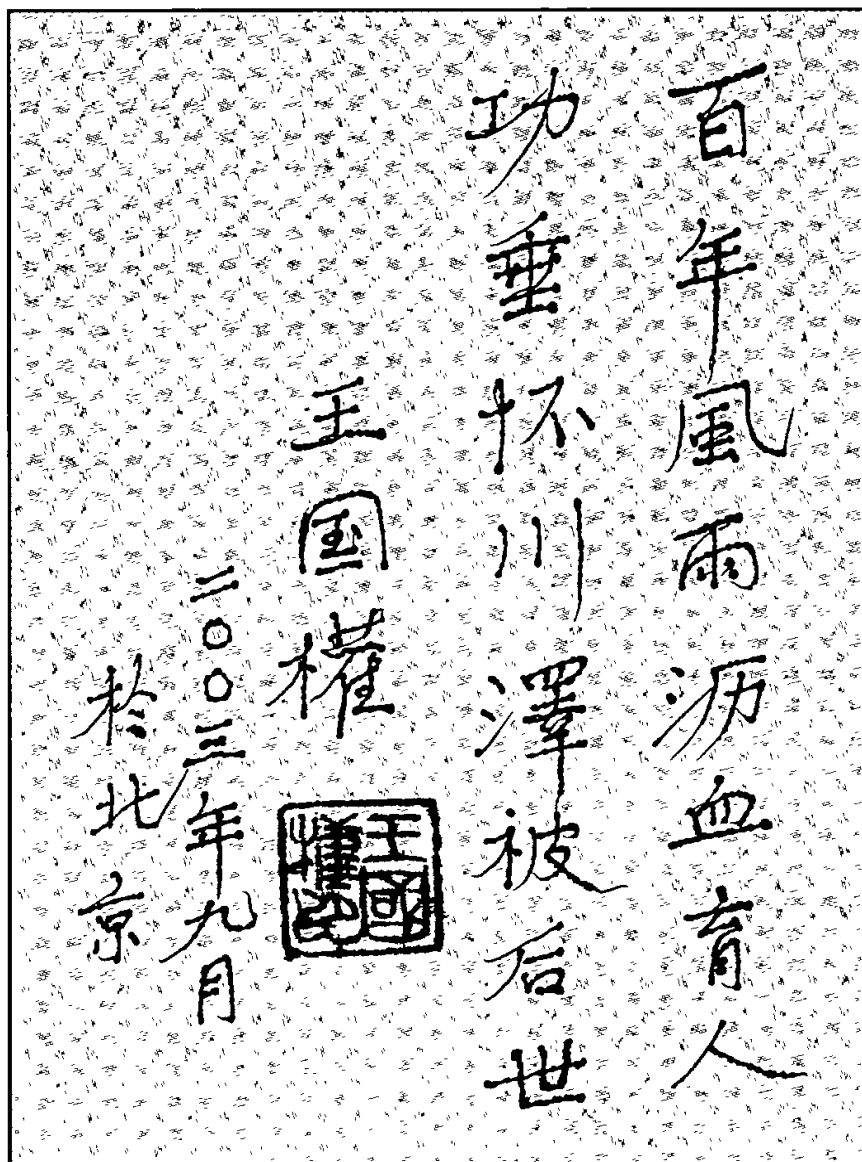 百年風雨沥血育人
功垂怀川澤被后世
王国權
王國權印
二〇〇三年九月
於北京